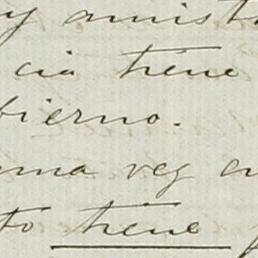 y amist
cia tiene
bierno.
ma veg en
to tiene